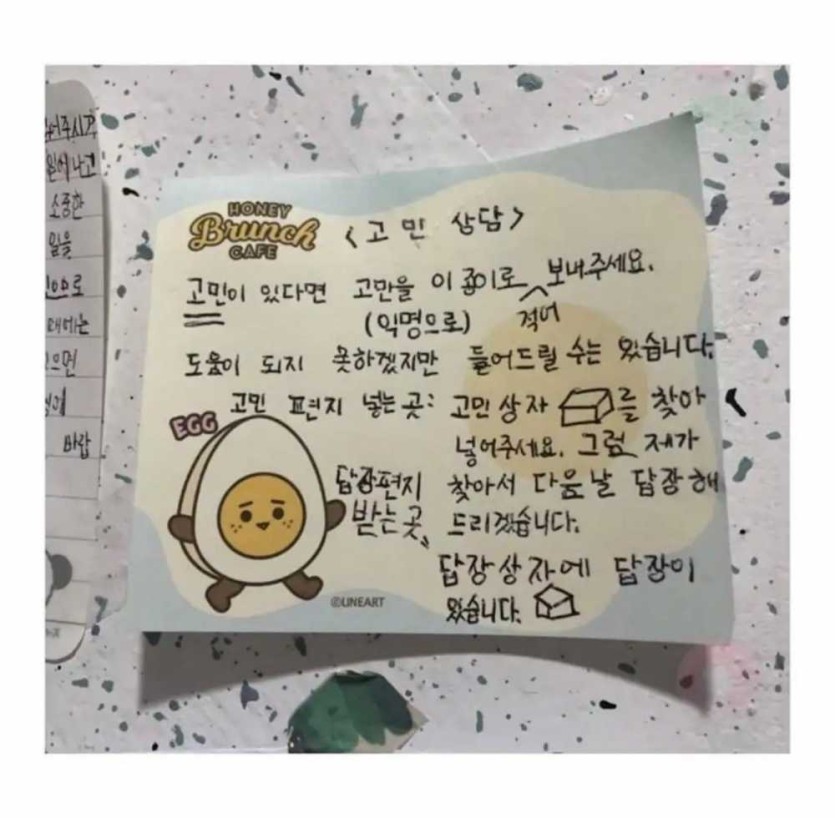 어주시기
소중한
일을
으로
때에는
으면
바랍
HONEY
Brunch
CAFE
<고민 상담>
고민이 있다면 고만을 이 종이로 적어 보내주세요.
(익명으로)
도움이 되지 못하겠지만 들어드릴 수는 있습니다.
고민 편지 넣는 곳: 고민상자 를 찾아
넣어주세요. 그럼 제가
EGG
답장편지 찾아서 다음날 답장해
받는 곳, 드리겠습니다.
답장상자에 답장이
있습니다.
©LINEART